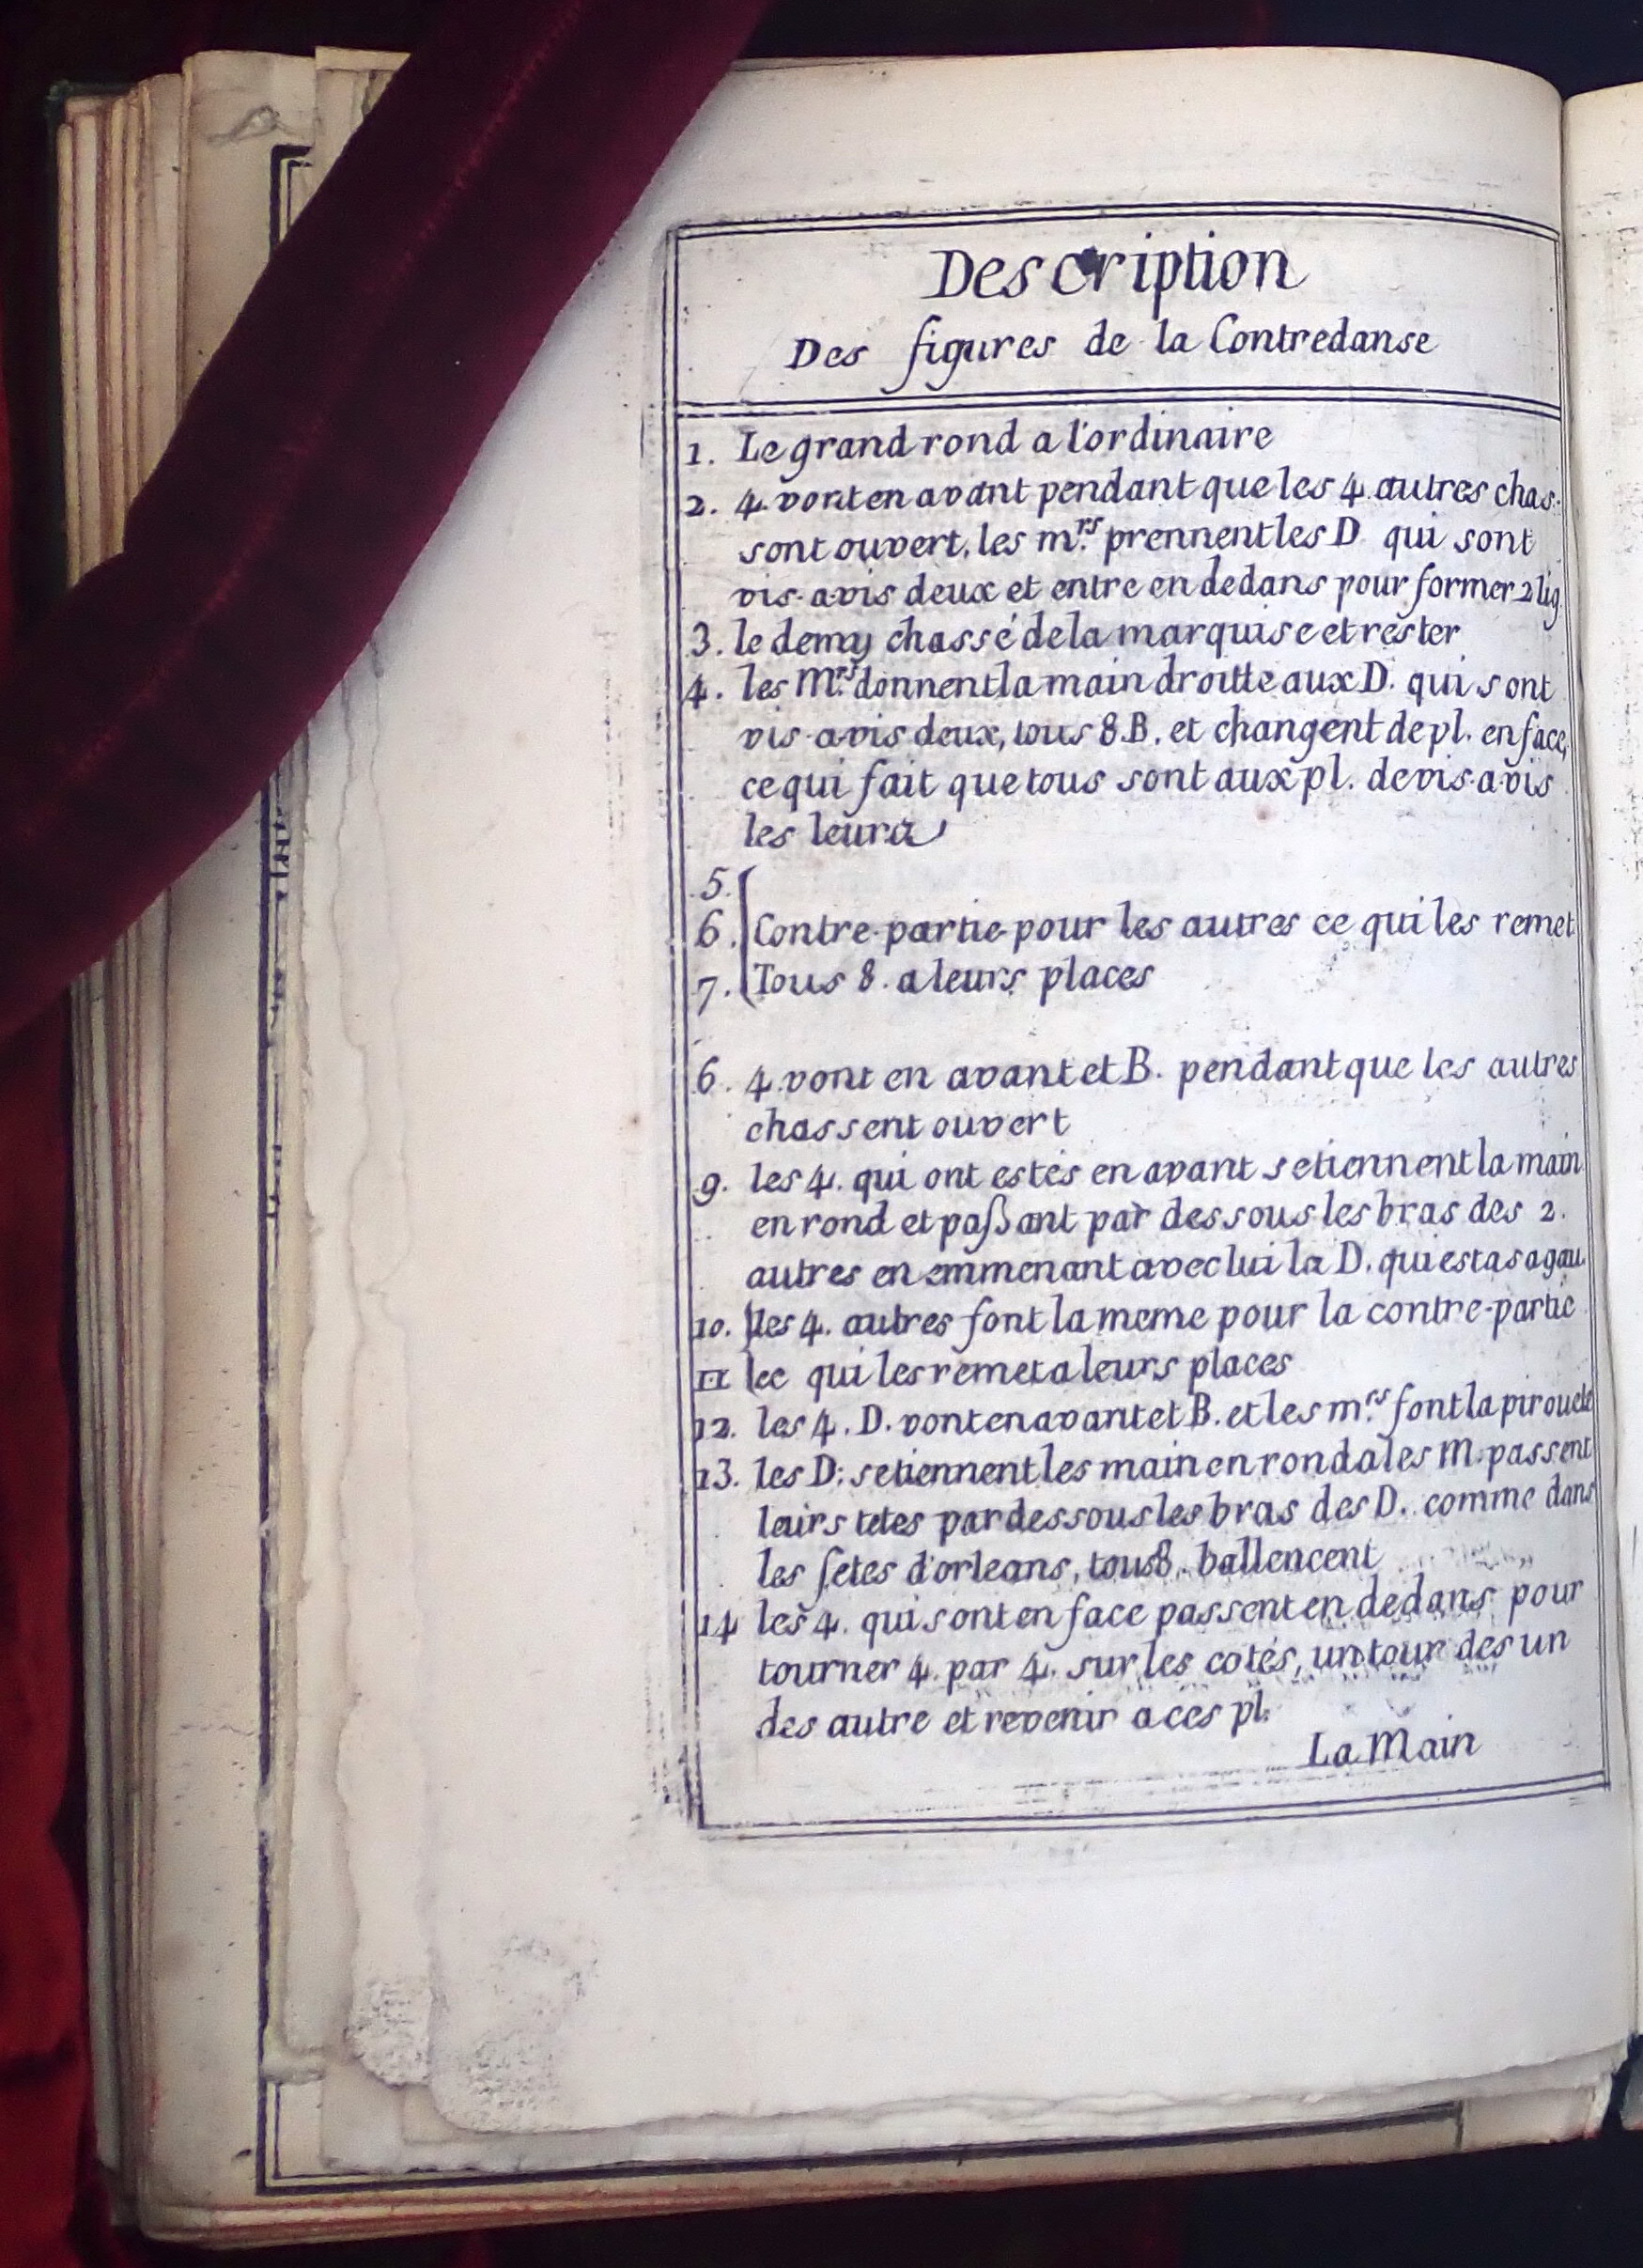 Description
Des figures de la Contredanse
1. Le grand rond a l'ordinaire
2. 4. vont en avant pendant que les 4. autres chas-
sont ouvert, les m.rs prennent les D qui sont
vis-avis deux et entre en dedans pour former 2 lig.
3. le demy chassé de la marquise et rester
4. les M.rs donnent la main droitte aux D. qui sont
vis-avis deux, tous 8. B. et changent de pl. en face,
ce qui fait que tous sont aux pl. de vis-a-vis
les leurs
5.
6. Contre-partie pour les autres ce qui les remet
7. Tous 8. a leurs places
6. 4. vont en avant et B. pendant que les autres
chassent ouvert
9. les 4. qui ont estés en avant se tiennent la main
en rond et paßant par dessous les bras des 2.
autres en emmenant avec lui la D. qui est a sa gau.
10. les 4. autres font la meme pour la contre-partie
11 ce qui les remet a leurs places
12. les 4. D. vont en avant et B. et les m.rs font la pirouete
13. les D. se tiennent les main en rond a les M. passent
leurs tetes par dessous les bras des D. comme dans
les fetes d'orleans, tous 8. ballencent
14 les 4. qui sont en face passent en dedans pour
tourner 4. par 4. sur les cotés, un tour des un
des autre et revenir a ces pl.
La Main